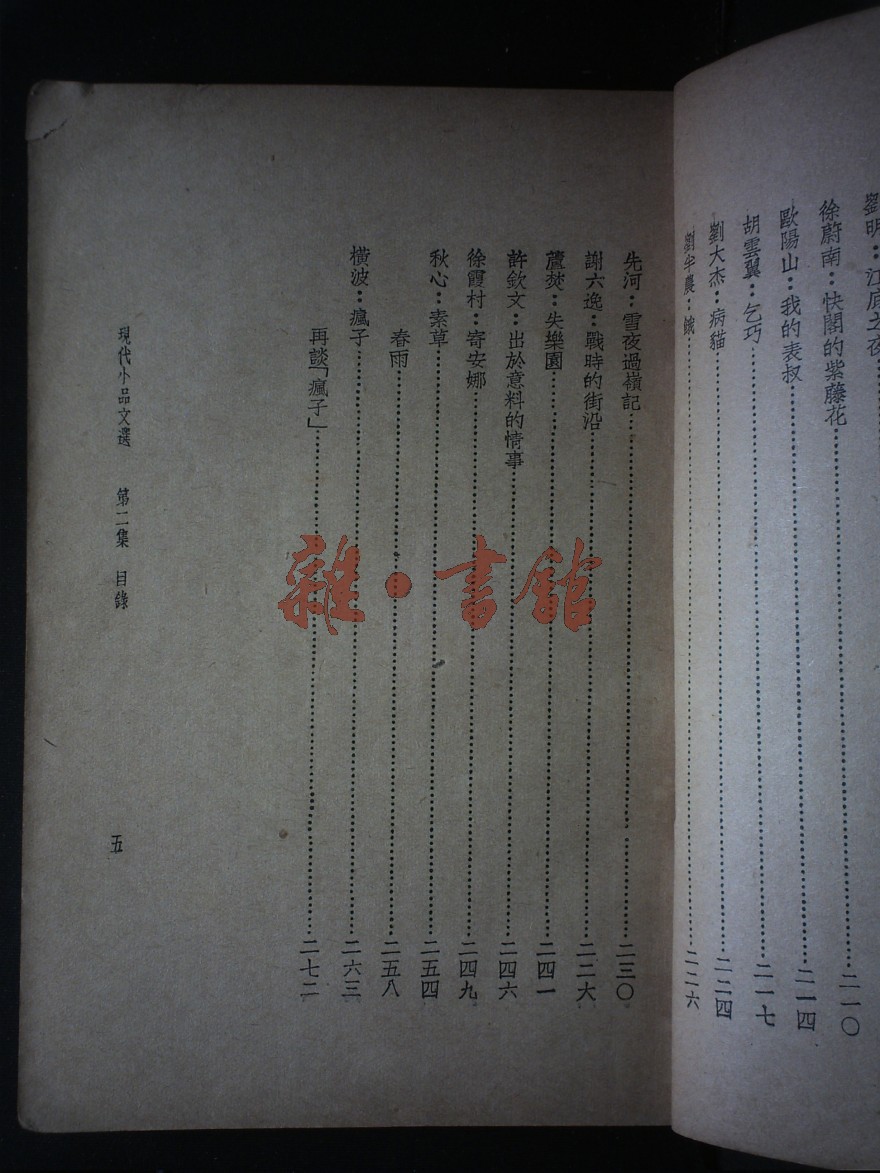 劉明：江底之夜
徐蔚南：快閣的紫藤花……二一〇
歐陽山：我的表叔……二一四
胡雲翼：乞巧……二一七
劉大杰：病貓……二二四
劉半農：餓……二二六
先河：雪夜過嶺記……二三〇
謝六逸：戰時的街沿……二二六
蘆焚：失樂園……二四一
許欽文：出於意料的情事……二四六
徐霞村：寄安娜……二四九
秋心：素草……二五四
春雨……二五八
橫波：瘋子……二六三
再談「瘋子」……二七二
現代小品文選　第二集　目錄
五
雜·書館